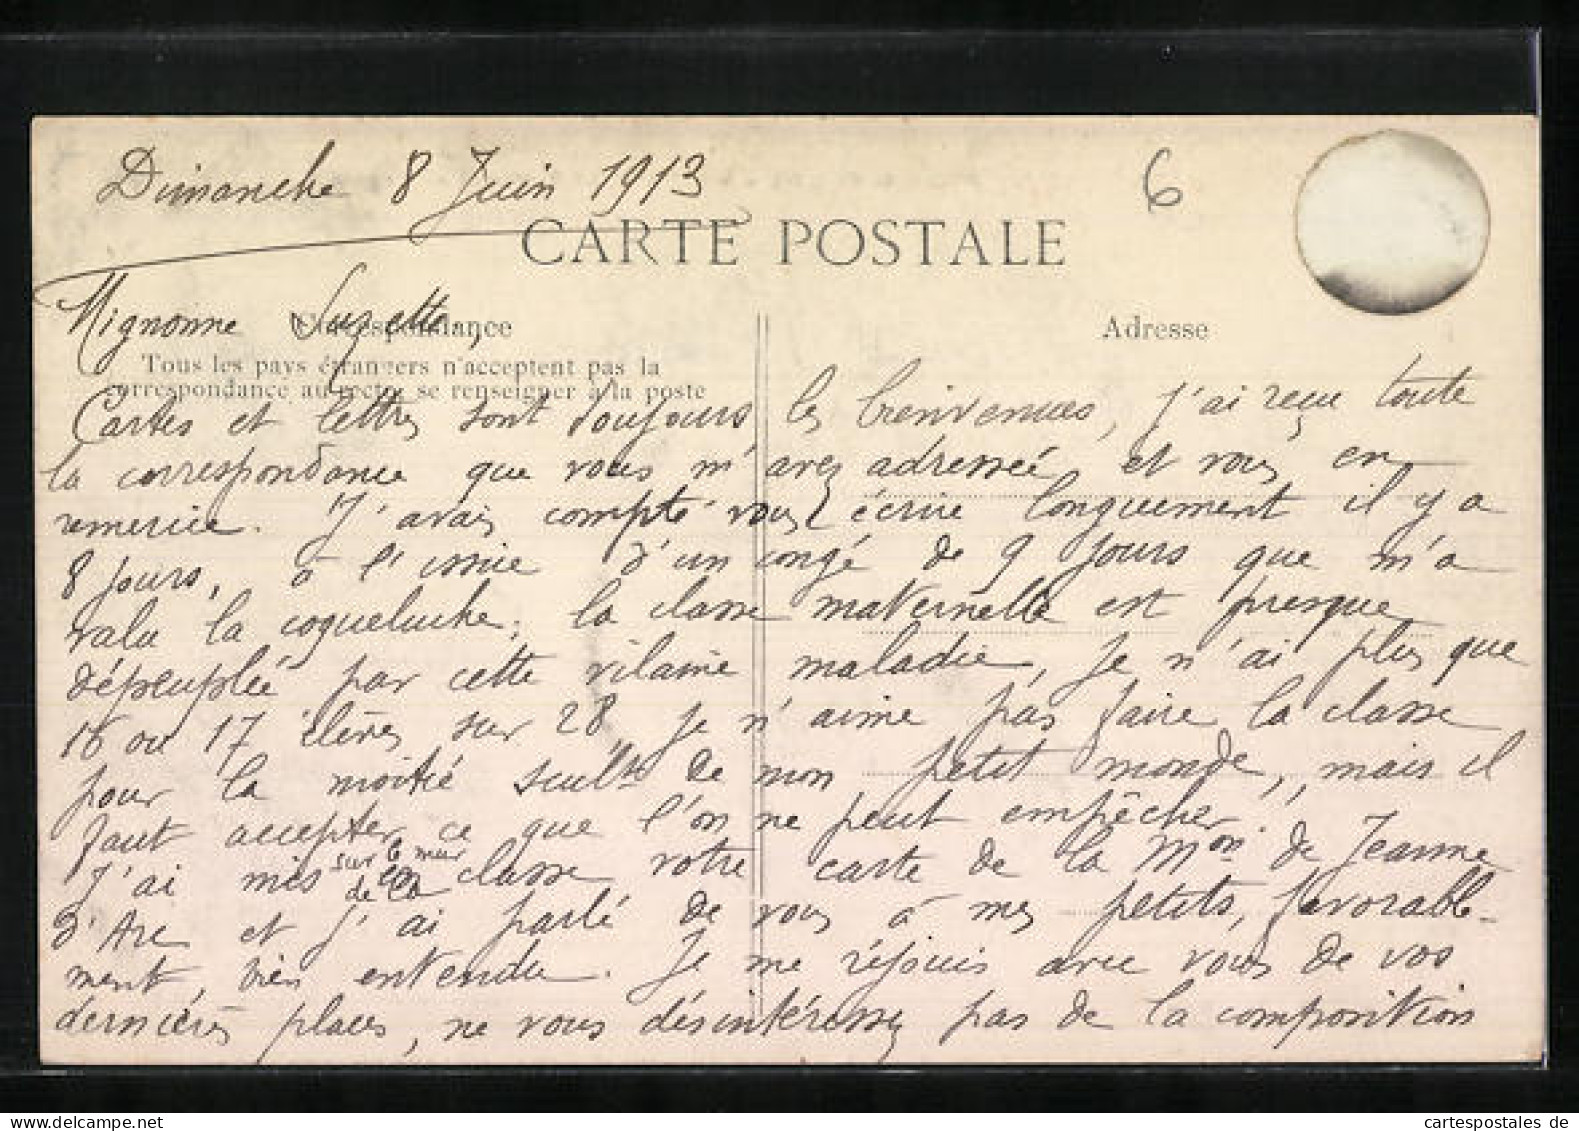 Dimanche 8 Juin 1913
6
CARTE POSTALE
Mignonne Suzette,
Correspondance
Adresse
Tous les pays étrangers n'acceptent pas la
correspondance au recto, se renseigner à la poste
Cartes et lettres sont toujours les bienvenues, j'ai reçu toute
la correspondance que vous m'avez adressée, et vous en
remercie. J'avais compté vous écrire longuement il y a
8 jours, à l'issue d'un congé de 9 jours que m'a
valu la coqueluche; la classe maternelle est presque
dépeuplée par cette vilaine maladie, je n'ai plus que
16 ou 17 élèves sur 28, je n'aime pas faire la classe
pour la moitié seult de mon petit monde, mais il
faut accepter ce que l'on ne peut empêcher!
J'ai mis sur le mur de la classe votre carte de la Mon de Jeanne
d'Arc et j'ai parlé de vous à mes petits, favorable-
ment, bien entendu. Je me réjouis avec vous de vos
dernières places, ne vous désintéressez pas de la composition
cartespostales.de